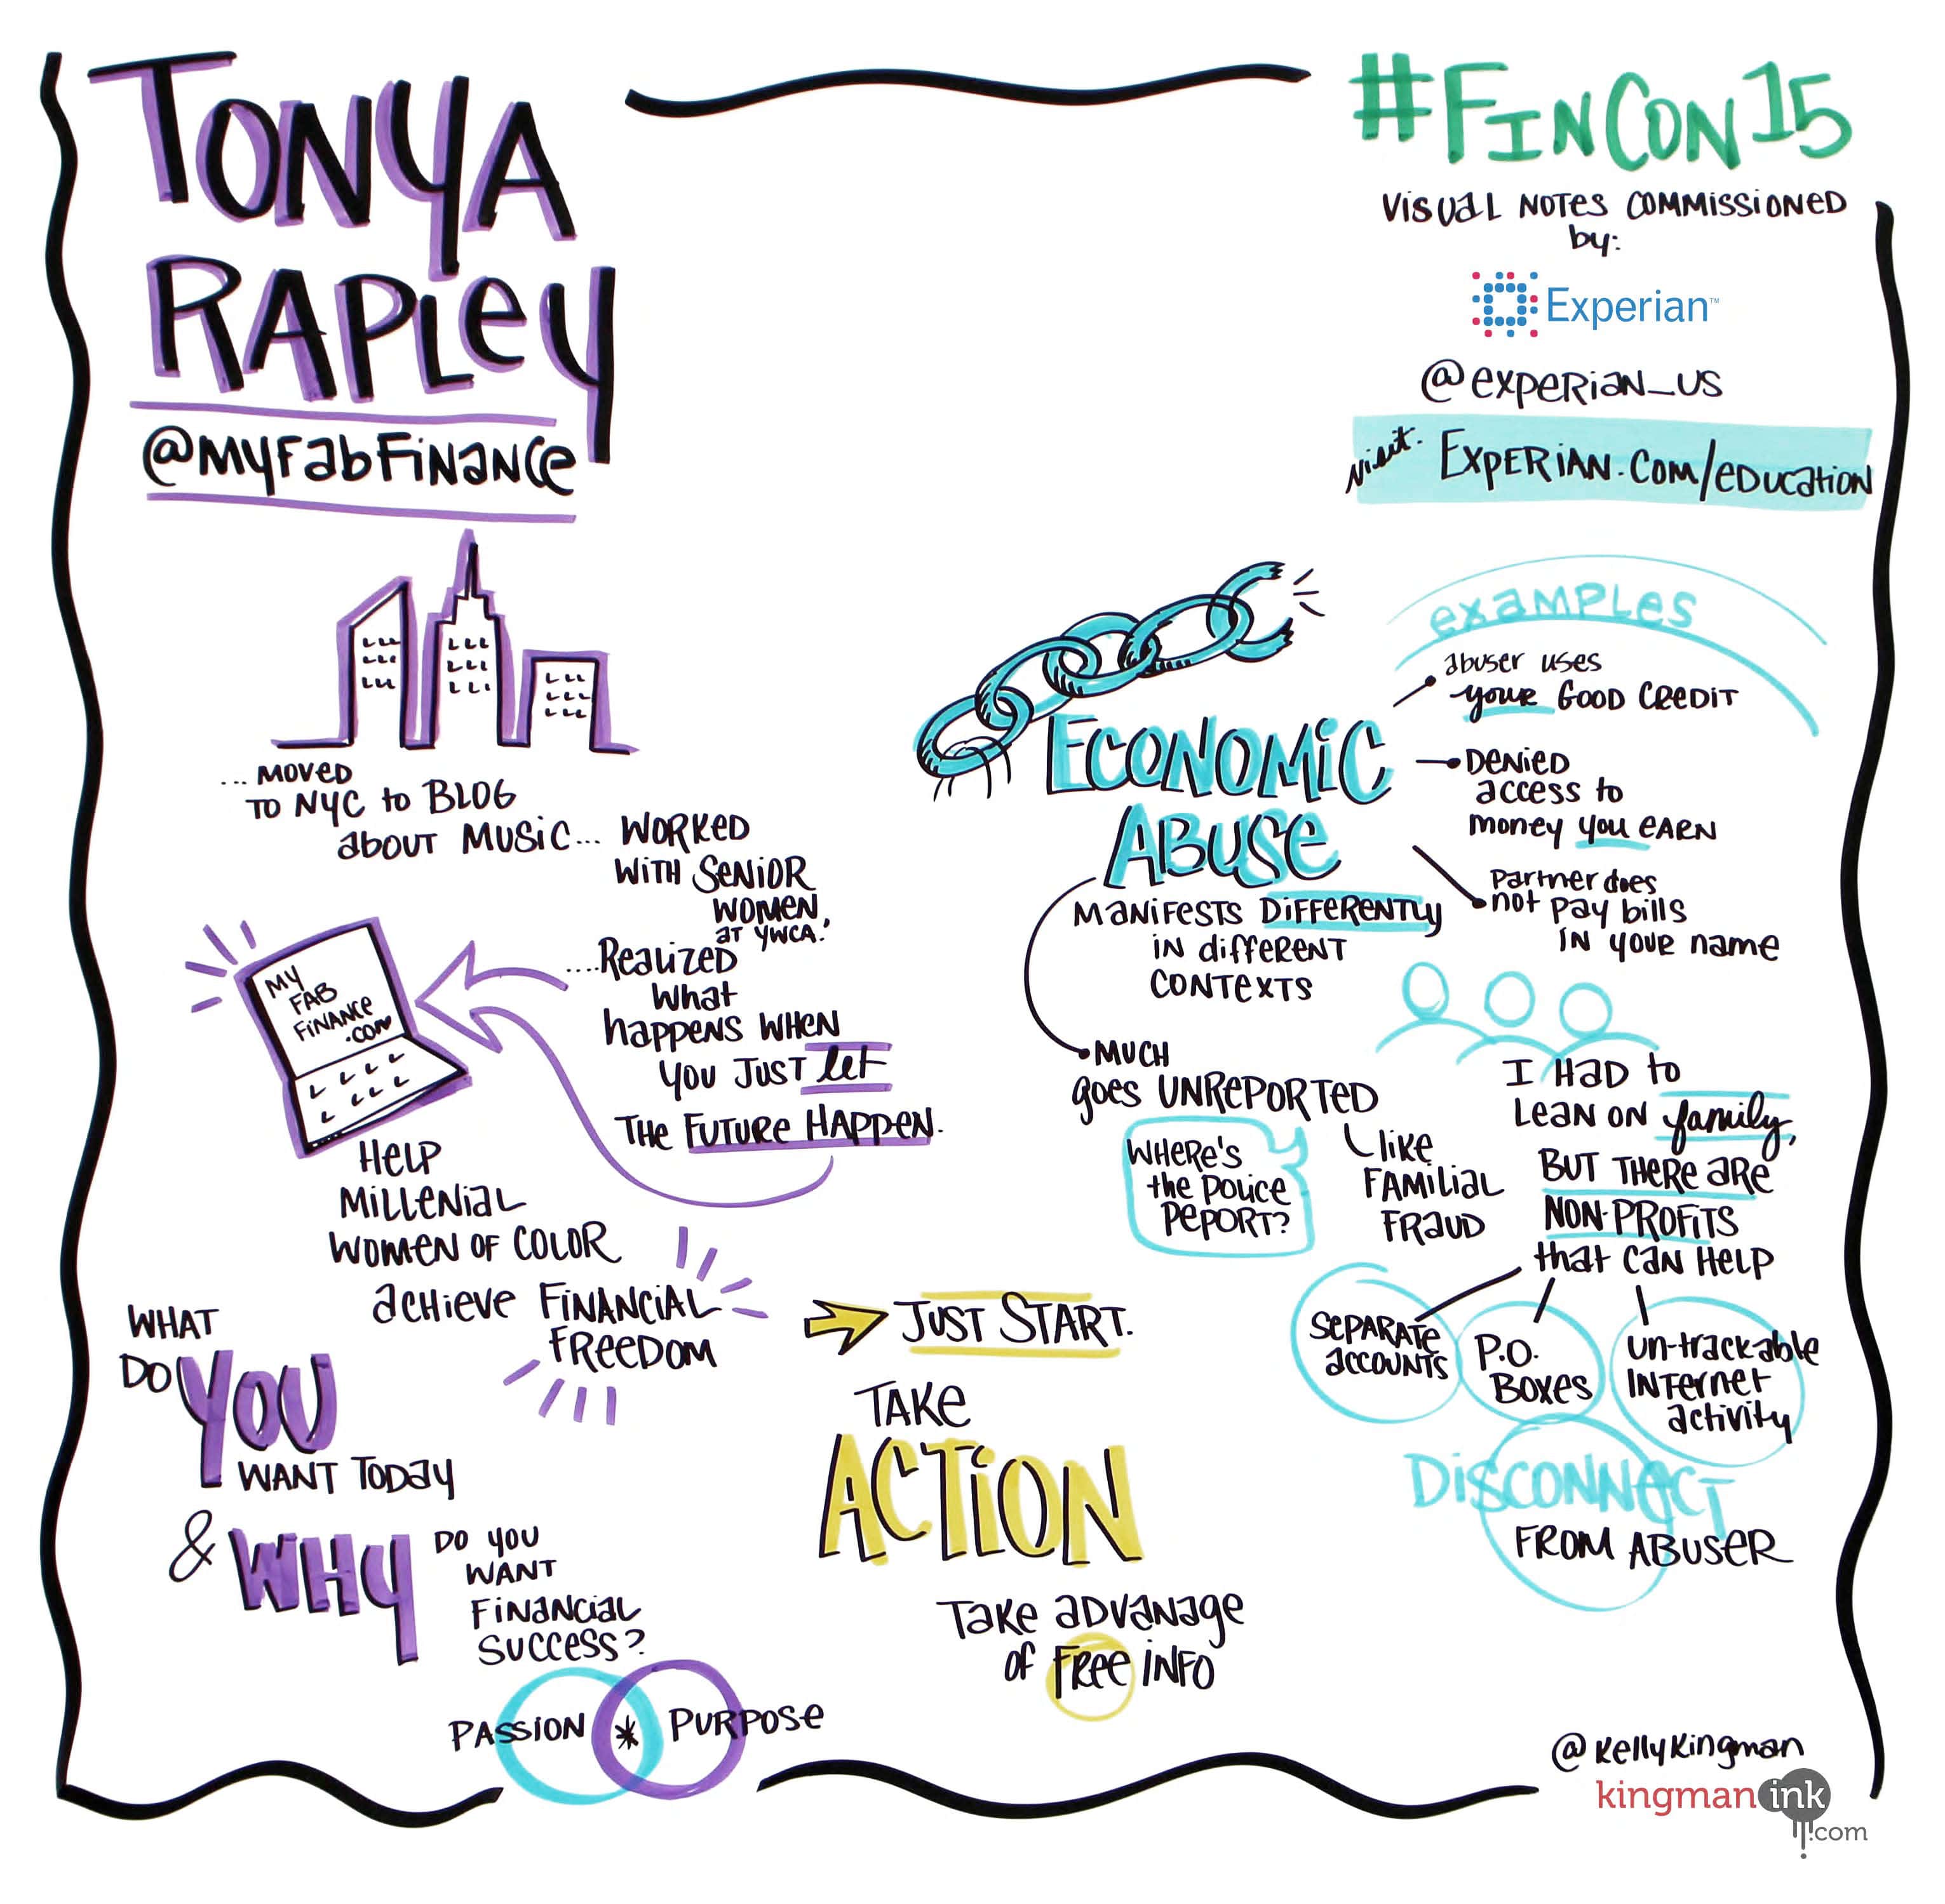 TONYA
RAPLEY
@MYFABFINANCE
#FINCON15
VISUAL NOTES COMMISSIONED
by:
Experian™
@EXPERIAN_US
visit: EXPERIAN.COM/EDUCATION
... MOVED
TO NYC to BLOG
about MUSIC... WORKED
WITH SENIOR
WOMEN,
AT YWCA!
....REALIZED
what
happens WHEN
YOU JUST let
THE FUTURE HAPPEN.
MY
FAB
FINANCE
.COM
HELP
MILLENIAL
WOMEN OF COLOR
ACHIEVE FINANCIAL
FREEDOM
WHAT
DO YOU
WANT TODAY
& WHY DO YOU
WANT
FINANCIAL
SUCCESS?
PASSION * PURPOSE
ECONOMIC
ABUSE
MANIFESTS DIFFERENTLY
IN different
CONTEXTS
MUCH
goes UNREPORTED
like
FAMILIAL
FRAUD
WHERE'S
the POLICE
PEPORT?
examples
abuser uses
your GOOD CREDIT
DENIED
access to
money you EARN
partner does
not pay bills
IN your name
I HAD to
LEAN ON family,
BUT THERE ARE
NON-PROFITS
that CAN HELP
SEPARATE
ACCOUNTS
P.O.
BOXES
UN-trackable
INTERNET
activity
DISCONNECT
FROM ABUSER
JUST START.
TAKE
ACTION
TAKE ADVANAGE
of FREE INFO
@kellykingman
kingman ink
.com